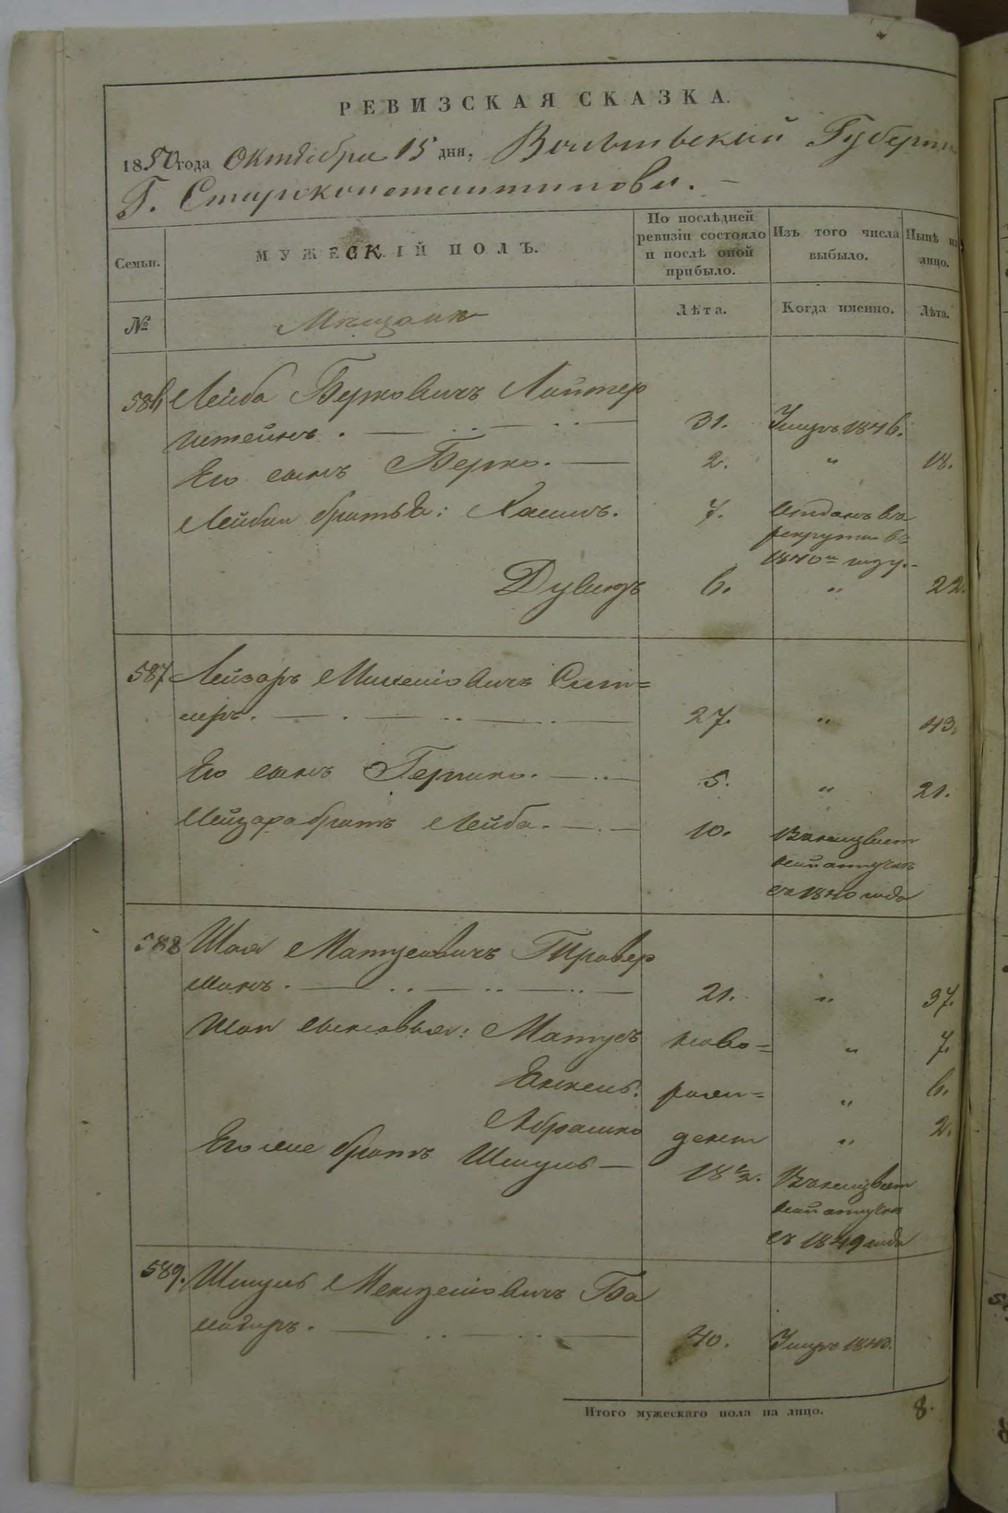 РЕВИЗСКАЯ СКАЗКА.
1850 года Октября 15 дня, Волынской Губернии
Г. Староконстантинова. —
Семьи.
МУЖЕСКІЙ ПОЛЪ.
По послѣдней ревизіи состояло и послѣ оной прибыло.
Изъ того числа выбыло.
Нынѣ на лицо.
№
Мѣщане
Лѣта.
Когда именно.
Лѣта.
586 Лейба Берковичъ
штейнъ. 31. Умеръ 1846.
Его сынъ Берко. — 2. „ 18.
Лейбы братья: Хаимъ. 7. Отданъ въ
рекруты въ
1840м году.
Дувидъ 6. „ 22.
587 Лейзоръ
27. „ 43.
Его сынъ Гершко. 5. „ 21.
Лейзора братъ Лейба. 10. Въ неизвѣст
ной отлучкѣ
съ 1840 года
588 Шая Матусовичъ
манъ. 21. „ 37.
Шаи сыновья: Матусъ ново= „ 7.
Янкель. рож= „ 6.
Абрамко денъ „ 2.
Его же братъ Шмуль — 18 ½. Въ неизвѣст
ной отлучкѣ
съ 1849 года
589. Шмуль
40. Умеръ 1840.
Итого мужескаго пола на лицо. 8.